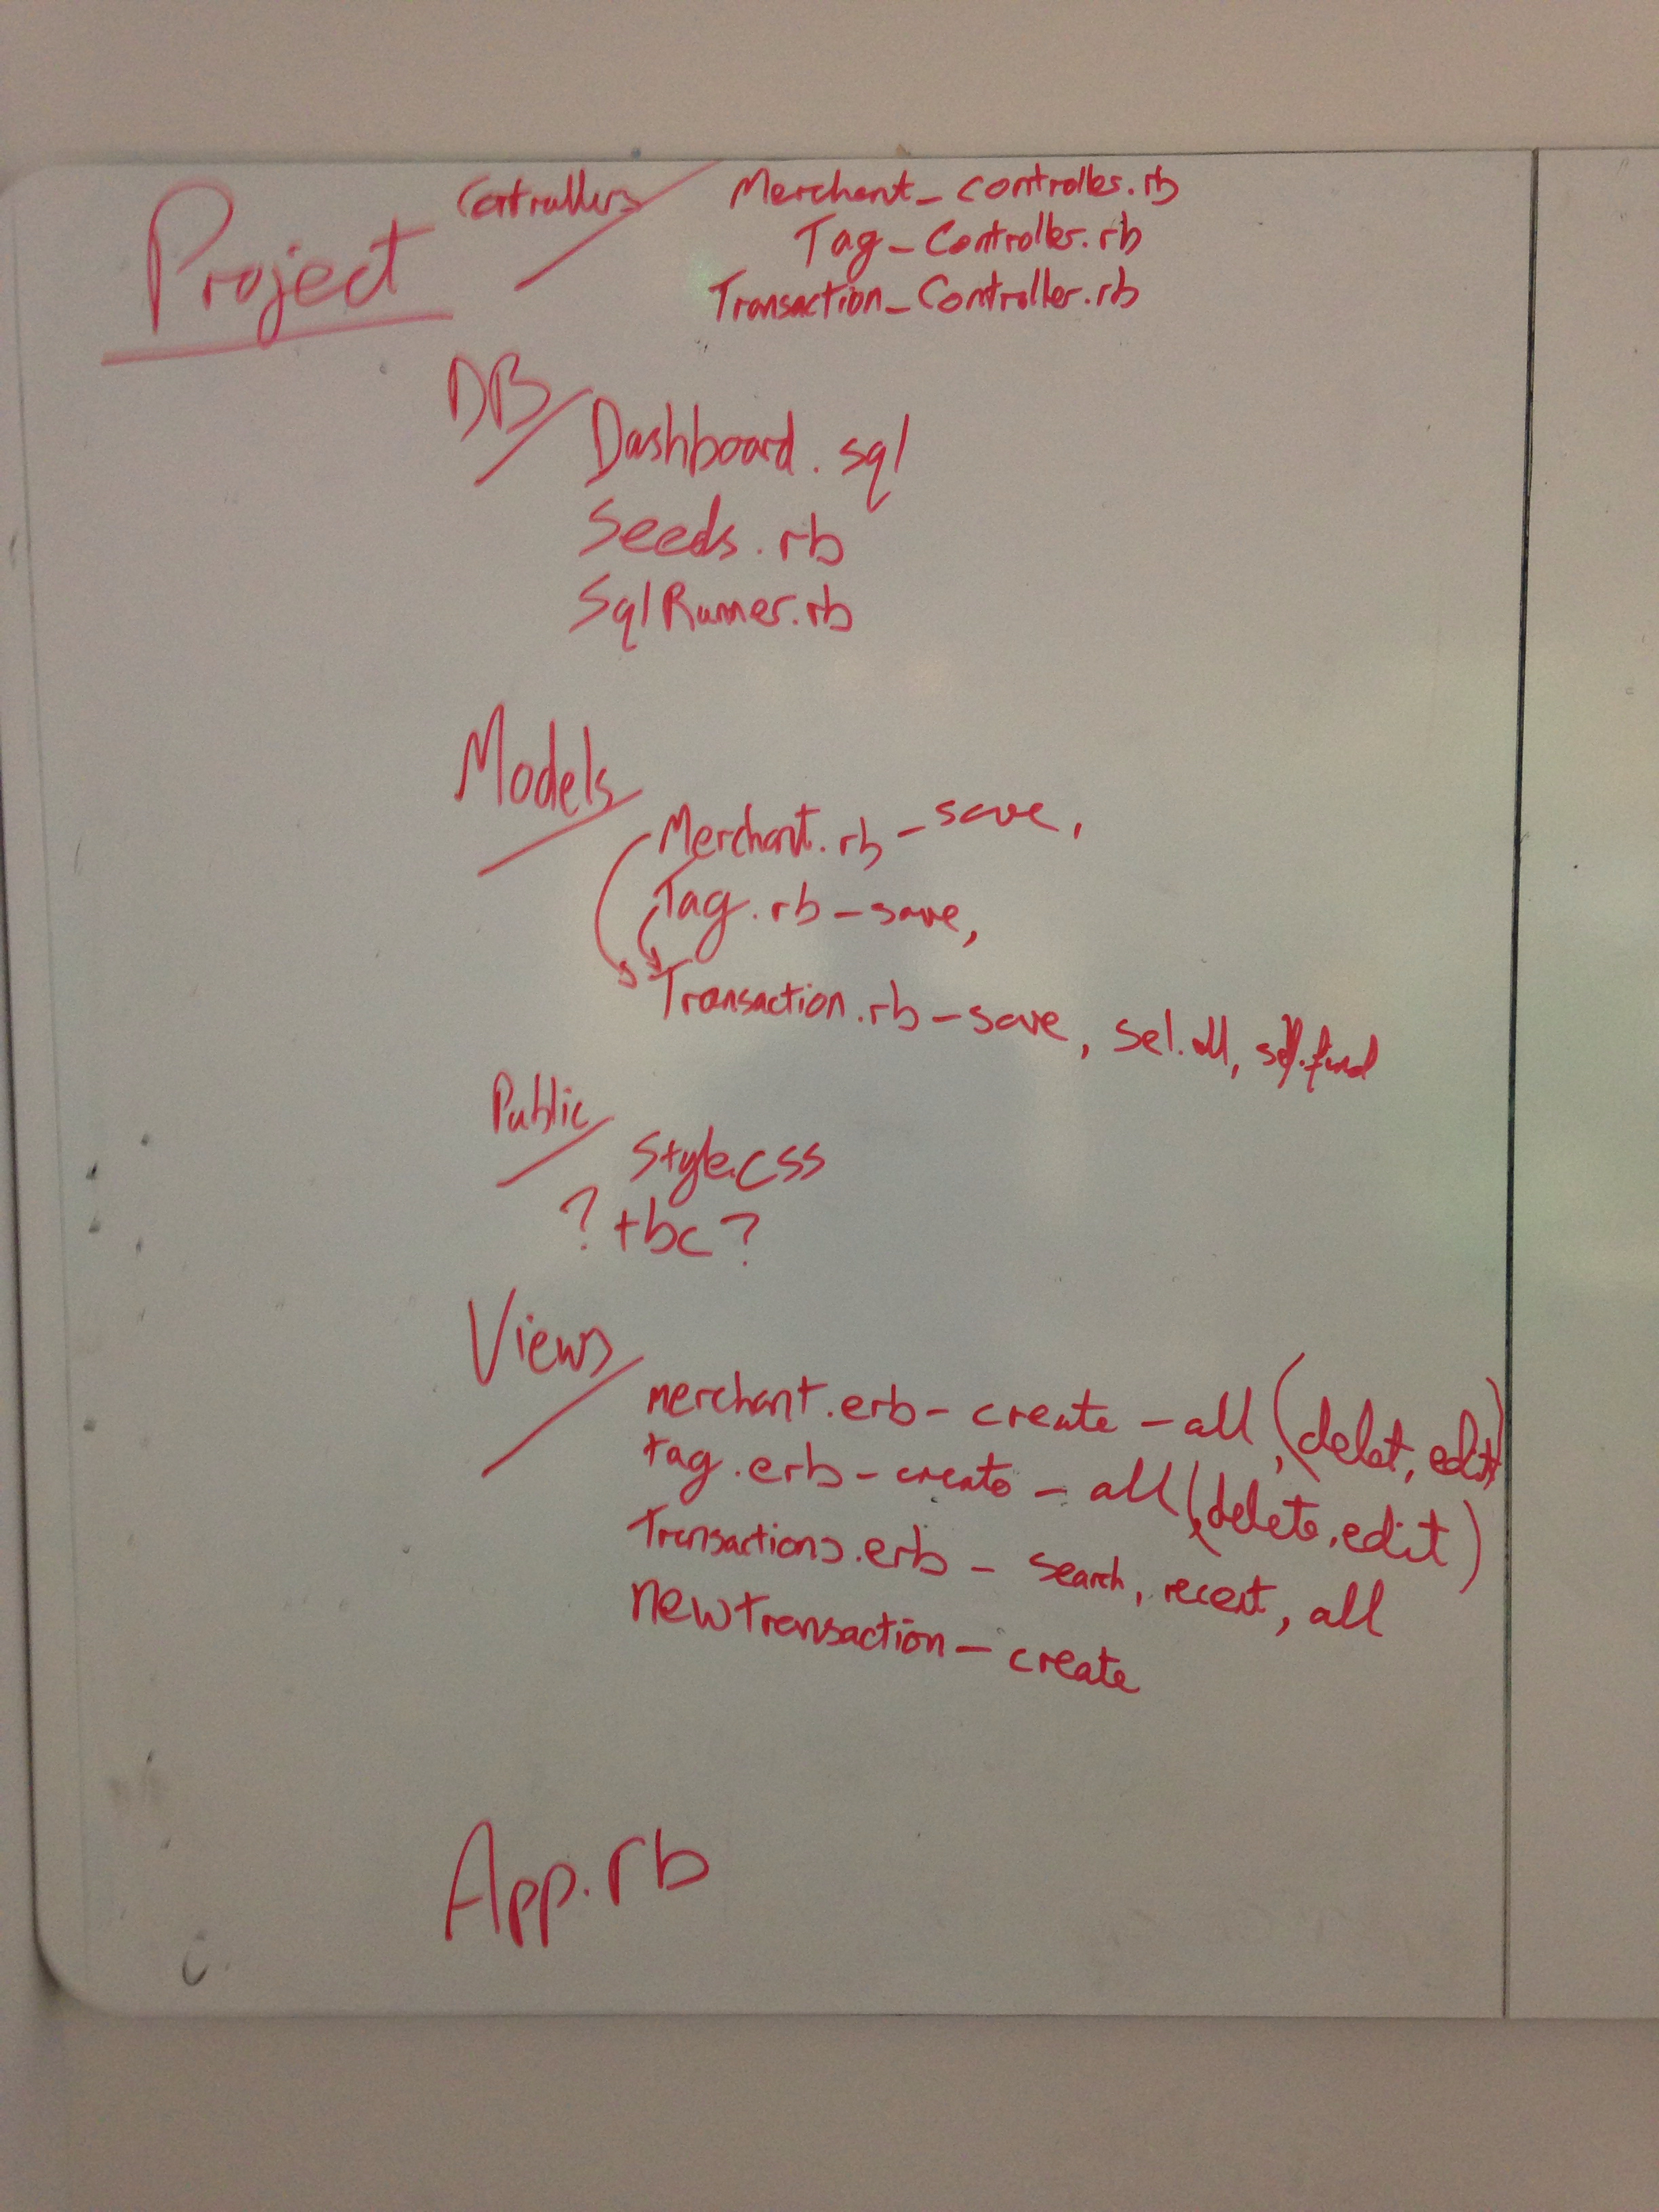 Project
Controllers/
Merchant_controller.rb
Tag_Controller.rb
Transaction_Controller.rb
DB/
Dashboard.sql
Seeds.rb
SqlRunner.rb
Models/
Merchant.rb - save,
Tag.rb - save,
Transaction.rb - save, Sel.all, self.find
Public/
Style.css
? tbc ?
Views/
merchant.erb - create - all, (delet, edit)
tag.erb - create - all, (delete, edit)
Transactions.erb - search, recent, all
newtransaction - create
App.rb